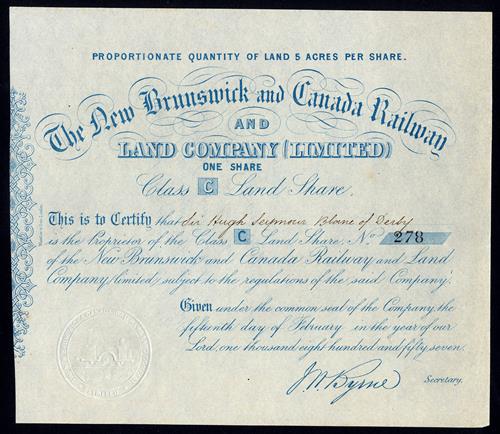 PROPORTIONATE QUANTITY OF LAND 5 ACRES PER SHARE.
The New Brunswick and Canada Railway
AND
LAND COMPANY (LIMITED)
ONE SHARE
Class C Land Share.
This is to Certify that Sir Hugh Seymour Blane of Derby
is the Proprietor of the Class C Land Share, No. 278
of the New Brunswick and Canada Railway and Land
Company, limited, subject to the regulations of the said Company.
Given under the common seal of the Company, the
fifteenth day of February in the year of our
Lord, one thousand eight hundred and fifty seven.
J. W. Byrne Secretary.